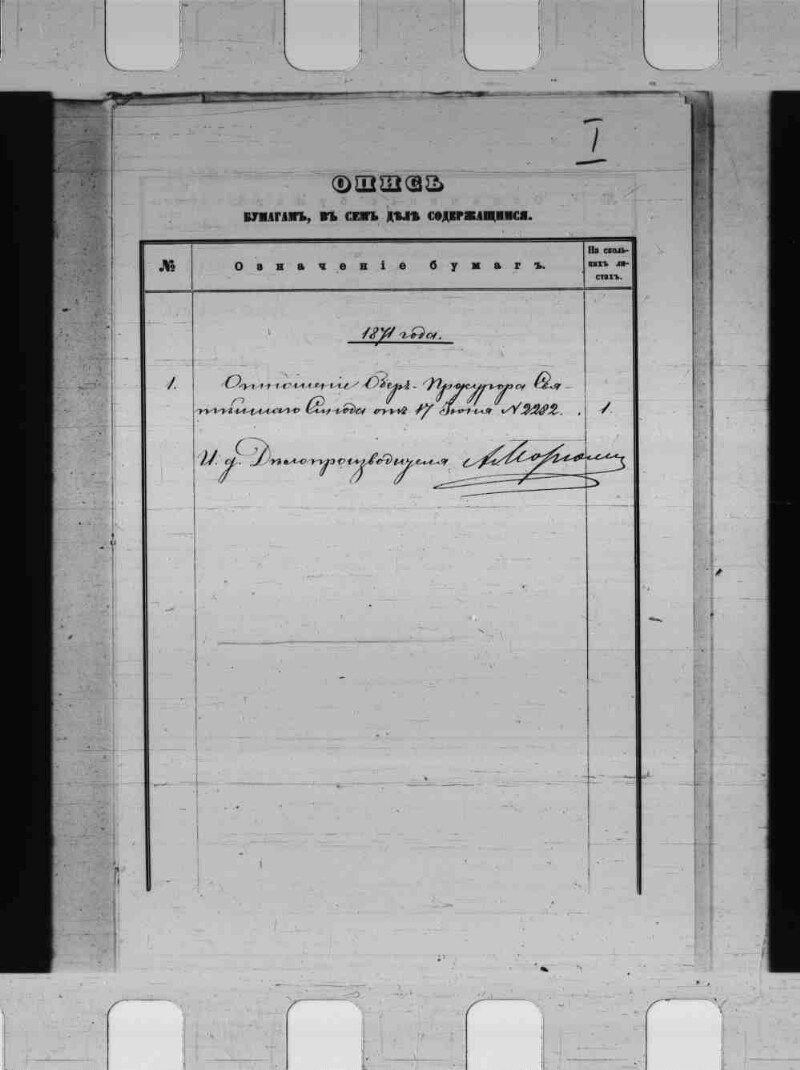 I
ОПИСЬ
БУМАГАМЪ, ВЪ СЕМЪ ДѢЛѢ СОДЕРЖАЩИМСЯ.
№
Означеніе бумагъ.
На сколь-
кихъ ли-
стахъ.
1871 года.
1. Отношеніе Оберъ-Прокурора Свя-
тѣйшаго Синода отъ 17 Іюня № 2282. . 1.
И. д. Дѣлопроизводителя